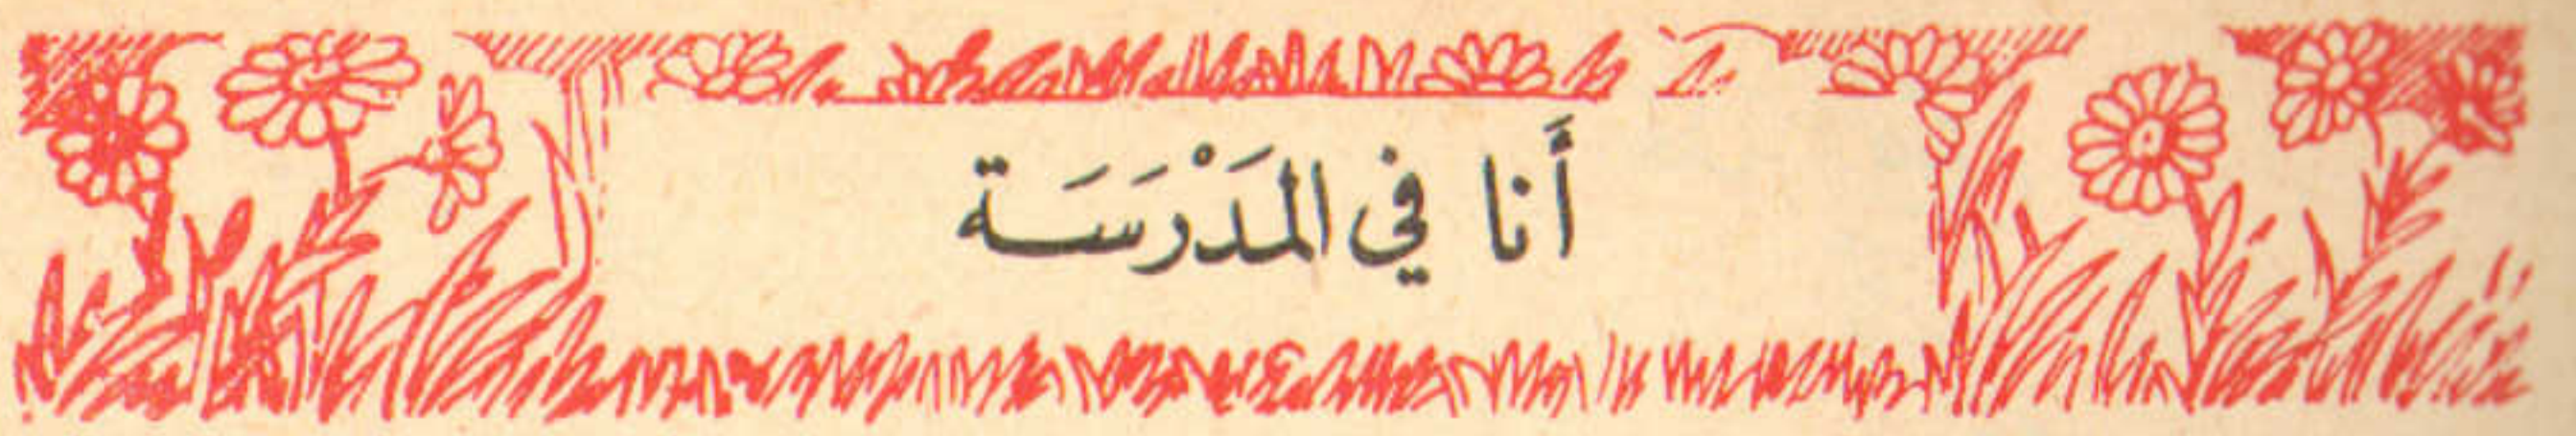 أَنا في المَدْرَسَة